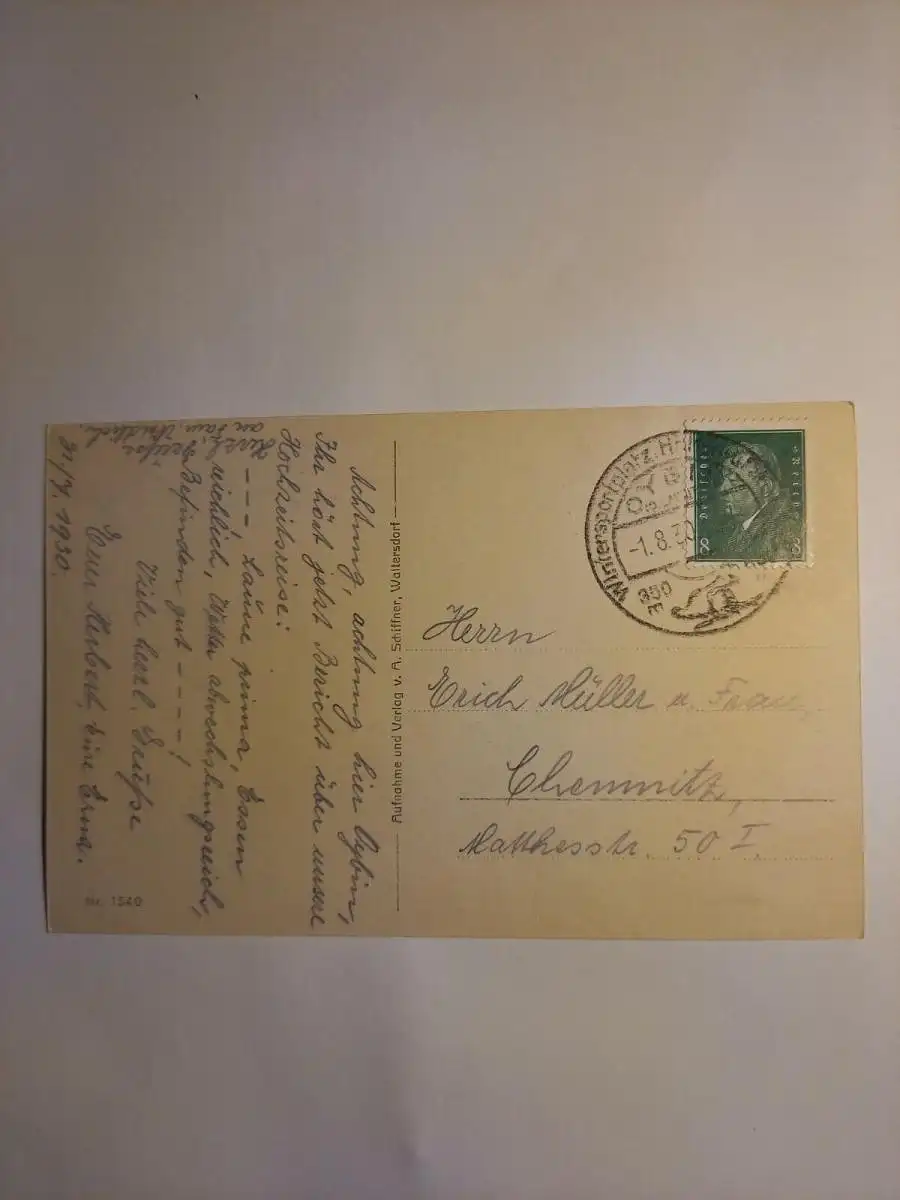 Achtung, achtung hier Oybin,
Ihr hört jetzt Bericht über unsere
Hochzeitsreise:
- - - -, Laune prima, Essen
reichlich, Wetter abwechslungsreich,
Befinden gut - - - -!
Viele herzl. Grüße
Euer Herbert, Eure Erna.
31/7. 1930.
Herzl. Grüße
an Fam.
Nr. 1540
Aufnahme und Verlag v. A. Schiffner, Waltersdorf
Wintersportplatz
OYBIN
-1.8.30
950
Deutsches Reich
8 8
Herrn
Erich Müller u. Frau,
Chemnitz,
Matthesstr. 50 I.